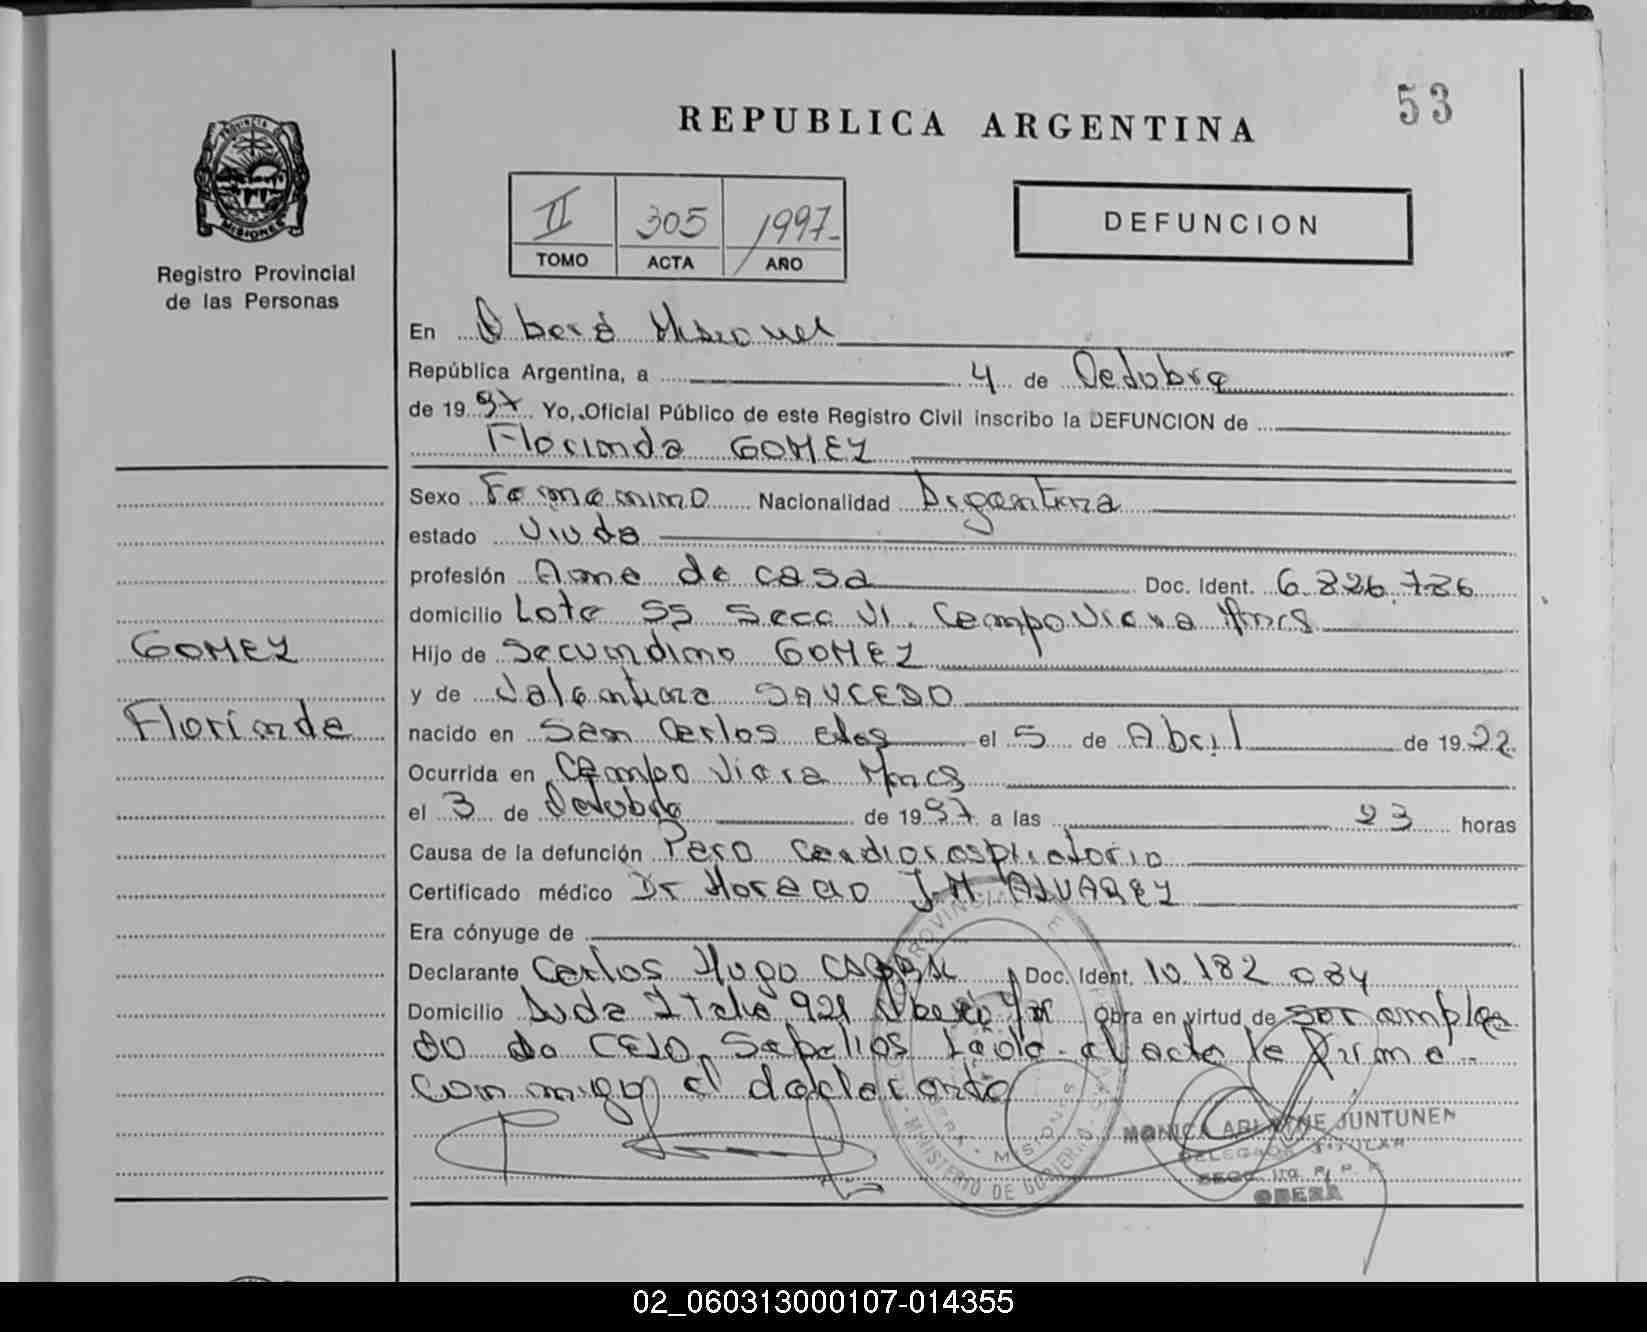 53
REPUBLICA ARGENTINA
PROVINCIA DE
MISIONES
Registro Provincial
de las Personas
II 305 1997.-
TOMO ACTA AÑO
DEFUNCION
En Oberá Misiones
República Argentina, a 4 de Octubre
de 1997 Yo, Oficial Público de este Registro Civil inscribo la DEFUNCION de
Florinda GOMEZ
Sexo Femenino Nacionalidad Argentina
estado Viuda
profesión Ama de casa Doc. Ident. 6.826.786
domicilio Lote 55 Secc VI. Campo Viera Mnes
GOMEZ
Hijo de Secundino GOMEZ
y de Valentina SAUCEDO
Florinda
nacido en San Carlos el 5 de Abril de 1922
Ocurrida en Campo Viera Mnes
el 3 de Octubre de 1997 a las 23 horas
Causa de la defunción Paro Cardiorespiratorio
Certificado médico Dr Horacio J.M. ALVAREZ
Era cónyuge de
Declarante Carlos Hugo Doc. Ident. 10.182.084
Domicilio Avda Italia 921 Oberá Obra en virtud de ser emplea
do de CELO, Sepelios Leída el acta la firma
conmigo el declarante
MONICA JUNTUNEN
DELEGADO TITULAR
SECC. 1ra. R. P. P.
OBERA
MINISTERIO DE GOBIERNO
MISIONES
02_060313000107-014355